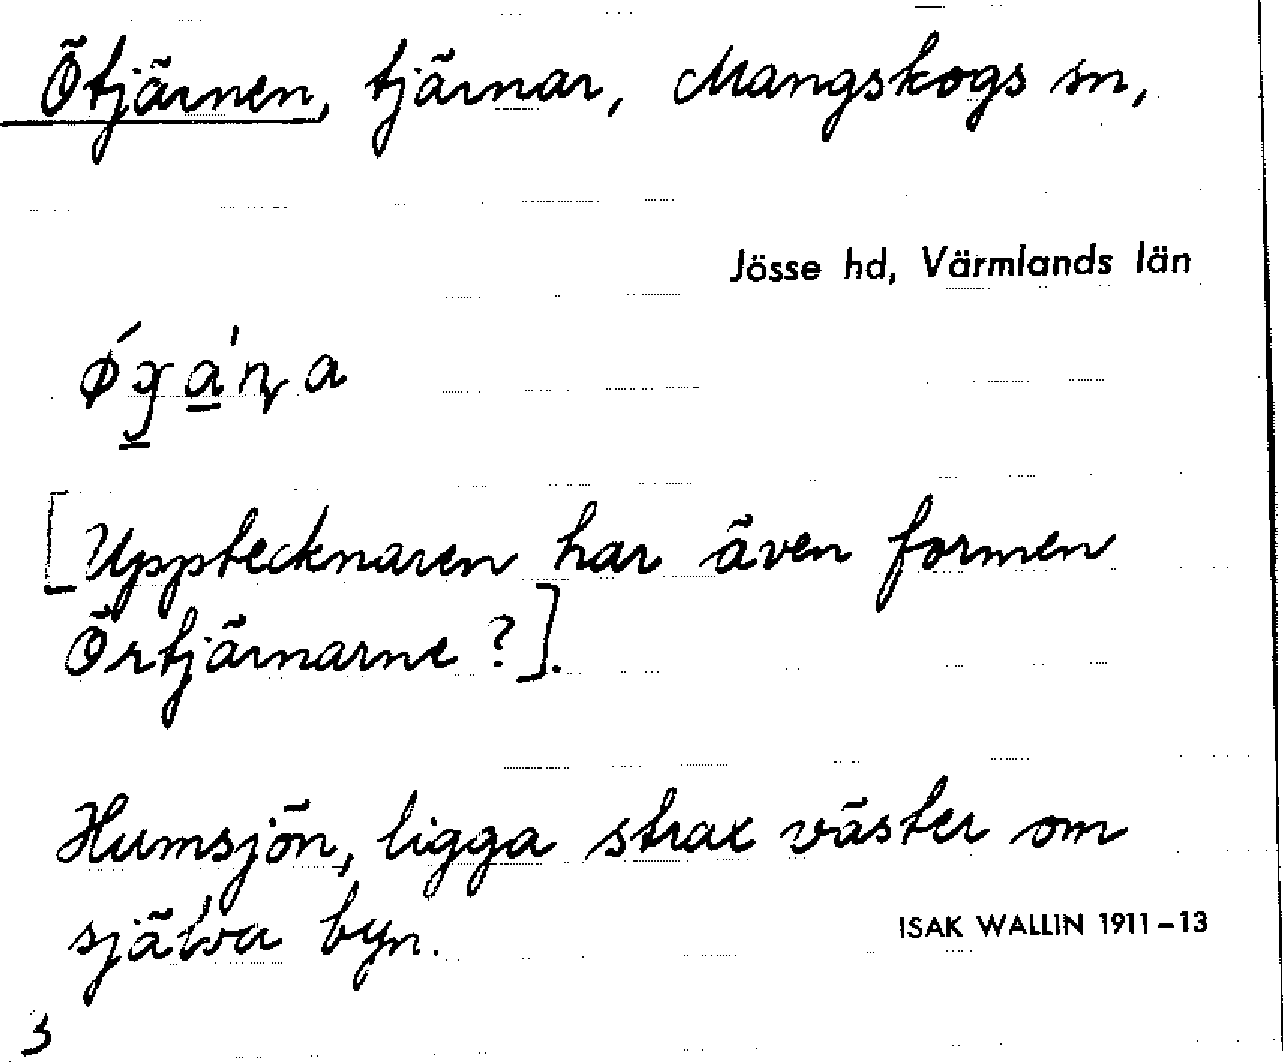 Ötjärnen, tjärnar, Mangskogs sn,
Jösse hd, Värmlands län
[Upptecknaren har även formen
Örtjärnarne?].
Humsjön, ligga strax väster om
själva byn.
ISAK WALLIN 1911-13
3